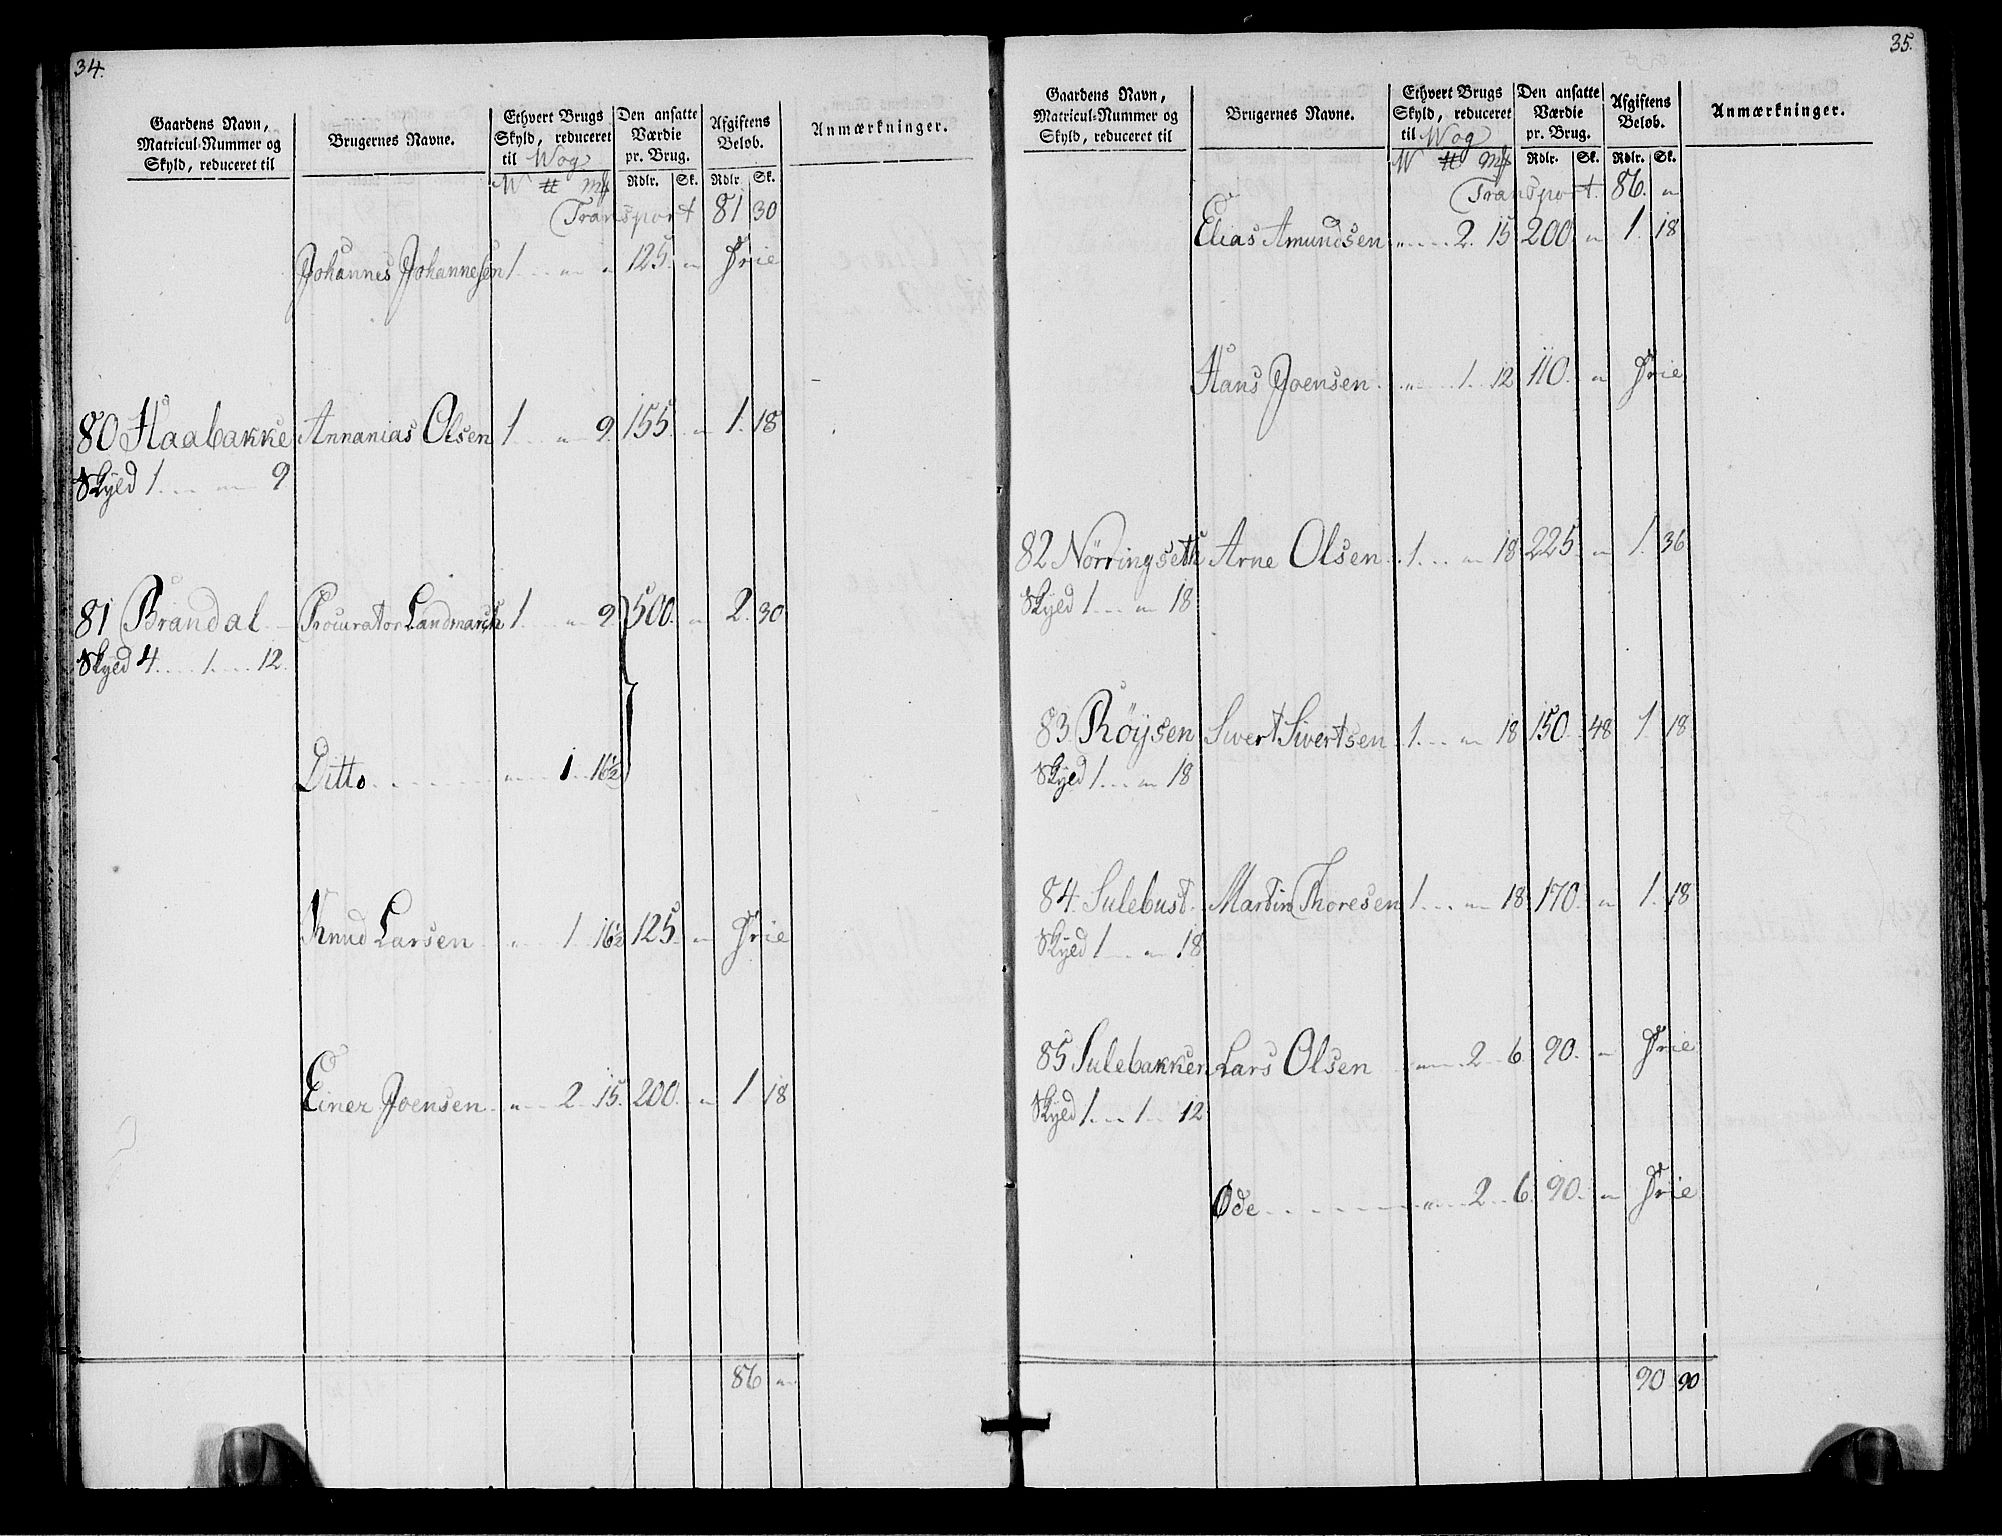 34.
Gaardens Navn, Matricul-Nummer og Skyld, reduceret til
Brugernes Navne.
Ethvert Brugs Skyld, reduceret til Wog
Den ansatte Værdie pr. Brug.
Afgiftens Beløb.
Anmærkninger.
W ℔ Mk Rdlr. Sk. Rdlr. Sk.
Transport 81 30
Johannes Johannesen 1 . . . „ „ 125. „ Frie
80 Haabakke Annanias Olsen 1 . . . „ 9. 155. „ 1. 18
Skyld 1 . . . „ 9
81 Brandal Procurator Landmarch 1 . . . „ 9. 500. „ 2. 30
Skyld 4 . . . 1 . . . 12.
Ditto . . . „ 1 . . 16½
Knud Larsen „ 1 . . 16½ 125. „ Frie
Einer Joensen „ 2 . . 15. 200. „ 1. 18
86 „
35.
Gaardens Navn, Matricul-Nummer og Skyld, reduceret til
Brugernes Navne.
Ethvert Brugs Skyld, reduceret til Wog
Den ansatte Værdie pr. Brug.
Afgiftens Beløb.
Anmærkninger.
W ℔ Mk Rdlr. Sk. Rdlr. Sk.
Transport. 86. „
Elias Amundsen „ 2. 15 200 „ 1. 18
Hans Joensen „ 1. 12 110. „ Frie
82 Nörringseth Arne Olsen 1 . . . „ 18 225. „ 1. 36
Skyld 1 . . . „ 18
83 Röysen Sivert Sivertsen 1 . . . „ 18 150. 48 1. 18
Skyld 1 . . . „ 18
84. Sulebust Martin Thoresen 1 . . . „ 18. 170. „ 1. 18
Skyld 1 . . . „ 18
85 Sulebakken Lars Olsen „ 2 . . 6. 90. „ Frie
Skyld 1 . . . 1 . . 12
Øde . . . „ 2 . . 6. 90. „ Frie
90 90